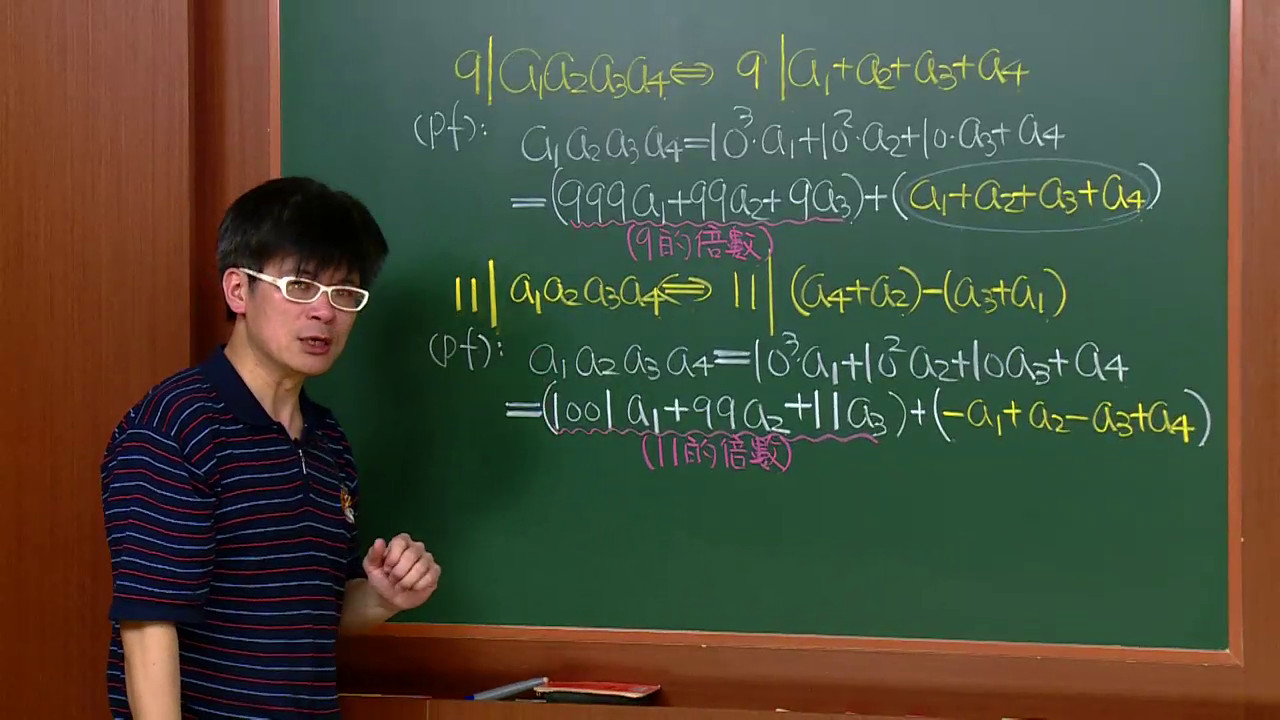 9|a₁a₂a₃a₄⇔ 9|a₁+a₂+a₃+a₄
(pf): a₁a₂a₃a₄=10³·a₁+10²·a₂+10·a₃+a₄
=(999a₁+99a₂+9a₃)+(a₁+a₂+a₃+a₄)
(9的倍數)
11|a₁a₂a₃a₄⇔ 11|(a₄+a₂)-(a₃+a₁)
(pf): a₁a₂a₃a₄=10³a₁+10²a₂+10a₃+a₄
=(1001a₁+99a₂+11a₃)+(-a₁+a₂-a₃+a₄)
(11的倍數)